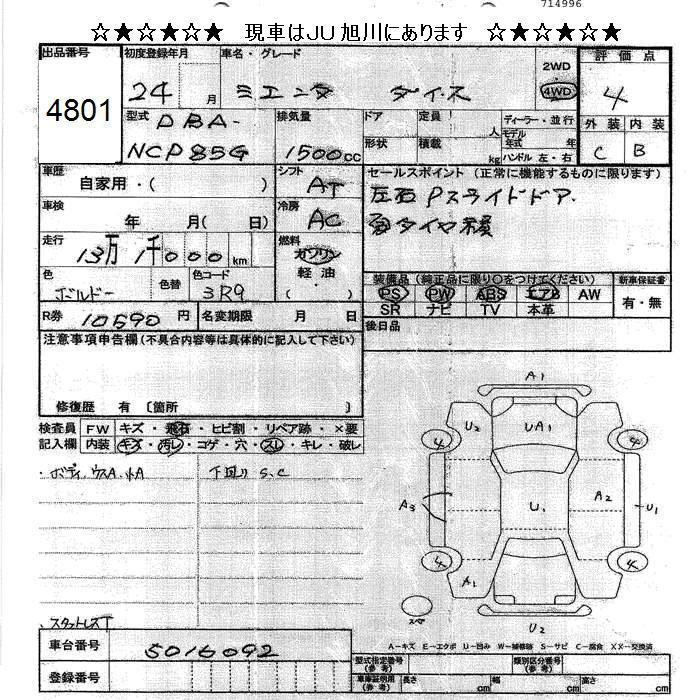 714996
☆★☆★☆★ 現車はJU 旭川にあります ☆★☆★☆★
出品番号 初度登録年月 車名・グレード 2WD 評価点
4801 24 月 ミエンタ ダイス 4WD 4
型式 DBA- 排気量 ドア 定員 人 ディーラー・並行 外装 内装
NCP85G 1500cc 形状 積載 kg モデル年式 年 ハンドル 左・右 C B
車歴 自家用・( ) シフト AT セールスポイント (正常に機能するものに限ります)
左右Pスライドドア
車検 年 月( 日) 冷房 AC
走行 13万1千000km 燃料 ガソリン
軽油・
( )
色 ボルドー 色替 色コード 3R9
装備品 (純正品に限り○をつけてください) 新車保証書
PS PW ABS エアB AW 有・無
SR ナビ TV 本革
R券 10590円 名変期限 月 日 後日品
注意事項申告欄(不具合内容等は具体的に記入して下さい)
修復歴 有 〔箇所 〕
検査員 FW キズ・飛石・ヒビ割・リペア跡・×要
記入欄 内装 キズ・汚レ・コゲ・穴・スレ・キレ・破レ
・ボディ ウスA.小A 下回り S.C
A1
U2 UA1
4 4
A3 U1 A2 U1
4 4
A1
スペア
U2
スタットレスT
A-キズ E-エクボ U-凹み W-補修跡 S-サビ C-腐食 XX-交換済
車台番号 5016092
型式指定番号(参考) 類別区分番号(参考)
登録番号 車庫証明用(参考) 長さ cm 幅 cm 高さ cm